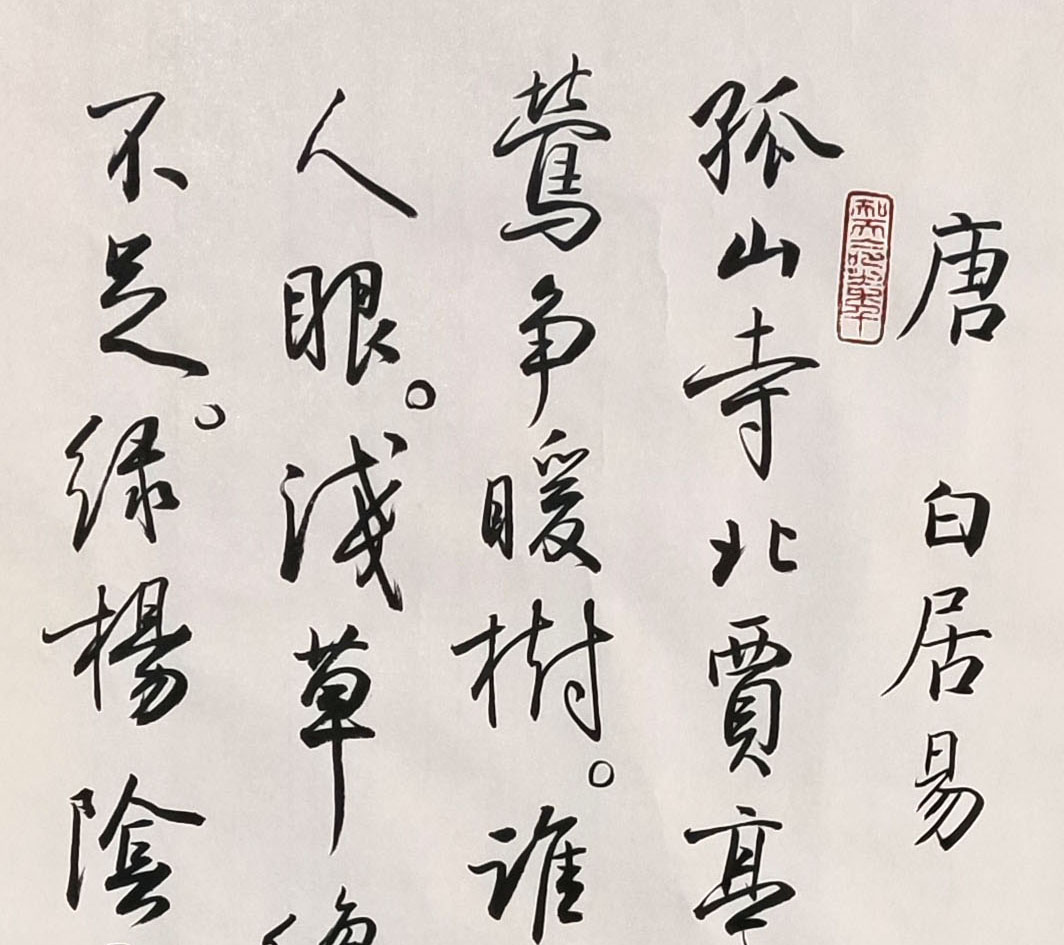 唐 白居易
孤山寺北賈亭
鶯争暖樹。誰
人眼。淺草
不足。绿楊陰